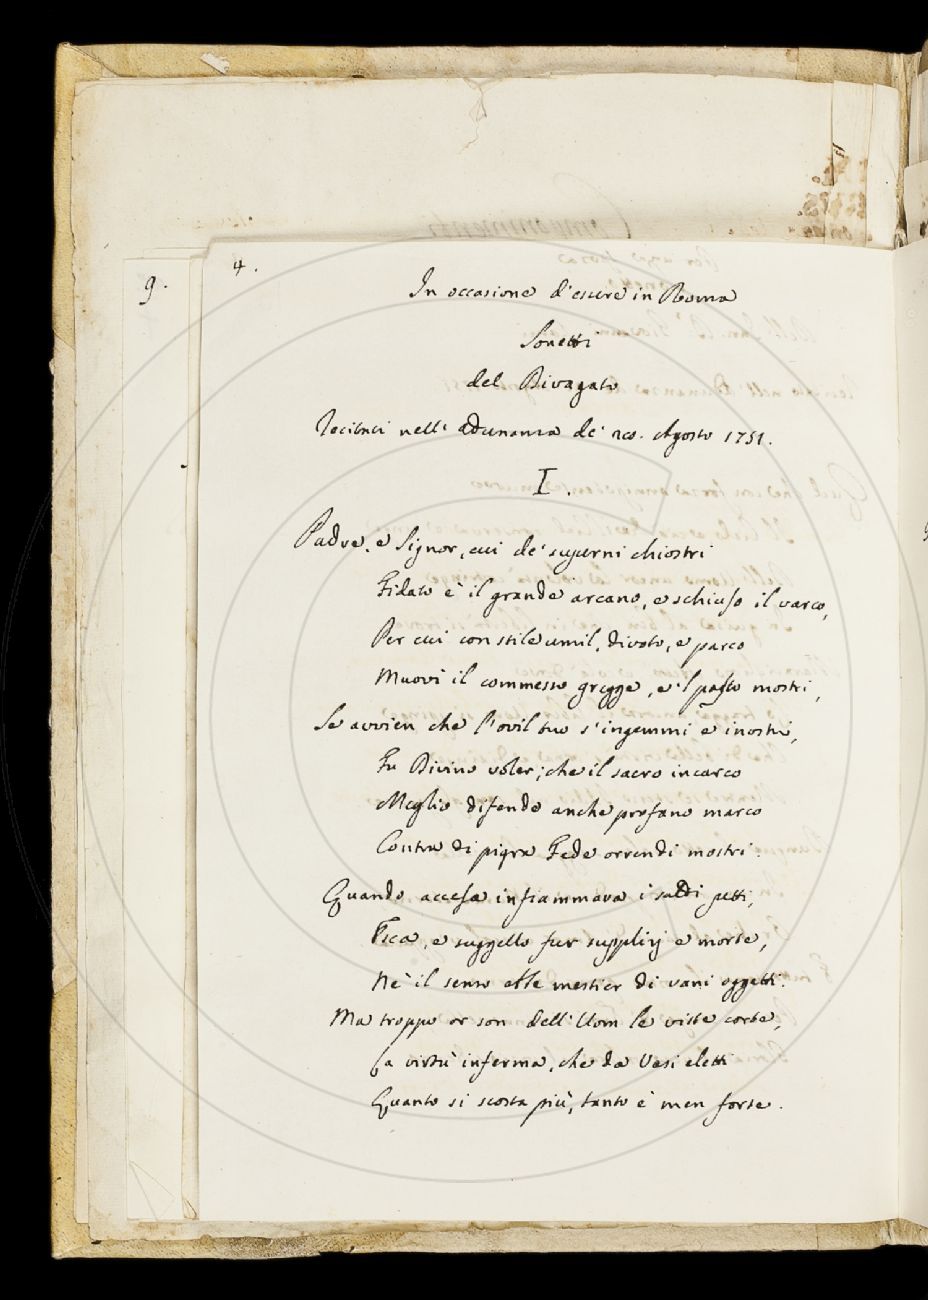 9.
4.
In occasione d'essere in Roma
Sonetti
del Divagato
Recitati nell' Adunanza de' 20. Agosto 1751.
I.
Padre, e Signor, cui de' superni chiostri
Fidato è il grande arcano, e schiuso il varco,
Per cui con stile umil, divoto, e parco
Muovi il commesso gregge, e 'l pasto mostri,
Se avvien che l'ovil tuo s'ingemmi e inostri,
Fu Divino voler; che il sacro incarco
Meglio difende anche profano marco
Contra di pigra Fede orrendi mostri.
Quando accesa infiammava i saldi petti,
Esca, e suggello fur supplizj e morte,
Nè il senso ebbe mestier di vani oggetti.
Ma troppo or son dell' Uom le viste corte,
La virtù inferma, che da Vasi eletti
Quanto si scosta più, tanto è men forte.